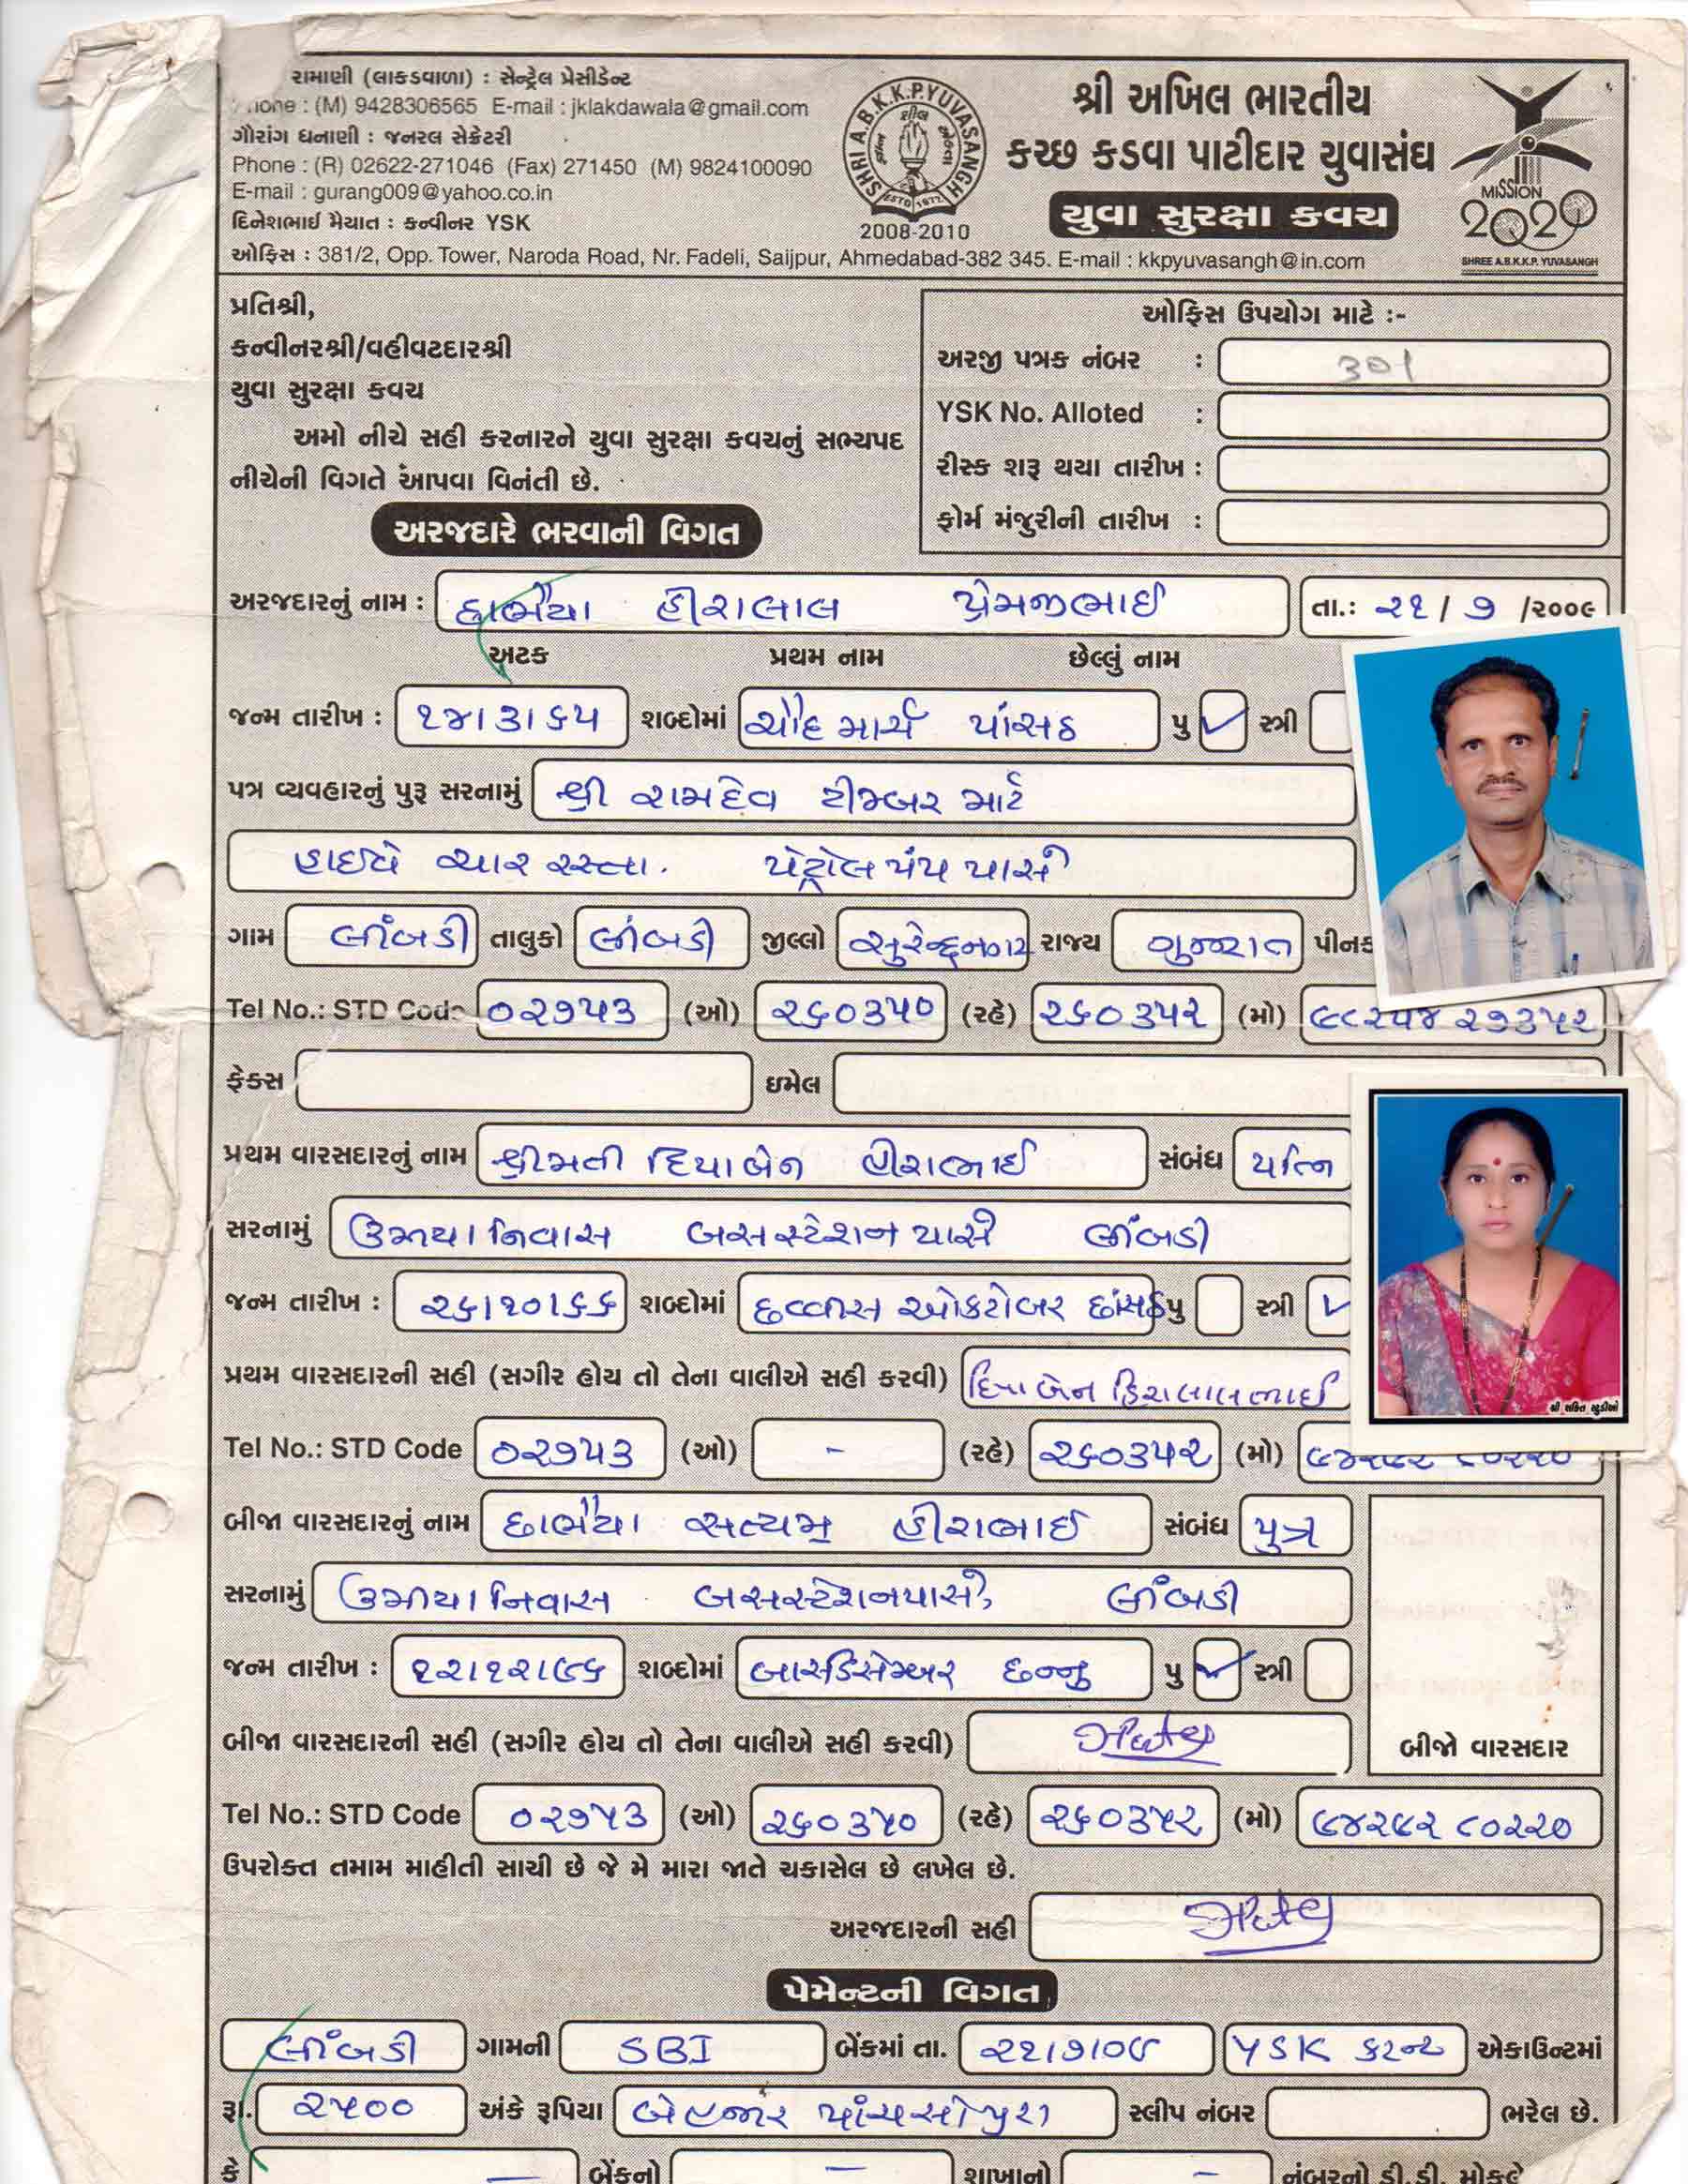 રામાણી (લાકડાવાળા) : સેન્ટ્રલ પ્રેસીડેન્ટ
(M) 9428306565 E-mail : jklakdawala@gmail.com
ગૌરાંગ ધનાણી : જનરલ સેક્રેટરી
Phone : (R) 02622-271046 (Fax) 271450 (M) 9824100090
E-mail : gurang009@yahoo.co.in
દિનેશભાઈ મૈયાત : કન્વીનર YSK
SHRI A.B.K.K.P.YUVASANGH
ESTD 1977
2008-2010
શ્રી અખિલ ભારતીય
કચ્છ કડવા પાટીદાર યુવાસંઘ
યુવા સુરક્ષા કવચ
MISSION
2020
SHREE A.B.K.K.P. YUVASANGH
ઓફિસ : 381/2, Opp. Tower, Naroda Road, Nr. Fadeli, Saijpur, Ahmedabad-382 345. E-mail : kkpyuvasangh@in.com
પ્રતિશ્રી,
કન્વીનરશ્રી/વહીવટદારશ્રી
યુવા સુરક્ષા કવચ
અમો નીચે સહી કરનારને યુવા સુરક્ષા કવચનું સભ્યપદ
નીચેની વિગતે આપવા વિનંતી છે.
ઓફિસ ઉપયોગ માટે :-
અરજી પત્રક નંબર : 301
YSK No. Alloted :
રીસ્ક શરૂ થયા તારીખ :
ફોર્મ મંજુરીની તારીખ :
અરજદારે ભરવાની વિગત
અરજદારનું નામ : છાભૈયા હીરાલાલ પ્રેમજીભાઈ તા.: ૨૧ / ૭ /૨૦૦૯
અટક પ્રથમ નામ છેલ્લું નામ
જન્મ તારીખ : ૧૪।૩।૬૫ શબ્દોમાં ચૌદ માર્ચ પાંસઠ પુ સ્ત્રી
પત્ર વ્યવહારનું પુરૂ સરનામું શ્રી રામદેવ ટીમ્બર માર્ટ
હાઇવે ચાર રસ્તા. પેટ્રોલ પંપ પાસે
ગામ લીંબડી તાલુકો લીંબડી જીલ્લો સુરેન્દ્રનગર રાજ્ય ગુજરાત પીનક
Tel No.: STD Code ૦૨૭૫૩ (ઓ) ૨૬૦૩૫૦ (રહે) ૨૬૦૩૫૨ (મો)
ફેક્સ ઇમેલ
પ્રથમ વારસદારનું નામ શ્રીમતી દિપાબેન હીરાભાઈ સંબંધ પત્નિ
સરનામું ઉમીયા નિવાસ બસ સ્ટેશન પાસે લીંબડી
જન્મ તારીખ : ૨૬।૧૦।૬૬ શબ્દોમાં છવ્વીસ ઓક્ટોબર છાંસઠ પુ સ્ત્રી
પ્રથમ વારસદારની સહી (સગીર હોય તો તેના વાલીએ સહી કરવી) દિપાબેન હિરાલાલભાઈ
શ્રી શક્તિ સ્ટુડીઓ
Tel No.: STD Code ૦૨૭૫૩ (ઓ) - (રહે) ૨૬૦૩૫૨ (મો)
બીજા વારસદારનું નામ છાભૈયા સત્યમ હીરાભાઈ સંબંધ પુત્ર
સરનામું ઉમીયા નિવાસ બસસ્ટેશનપાસે, લીંબડી
જન્મ તારીખ : ૧૨।૧૨।૯૬ શબ્દોમાં બારડિસેમ્બર છન્નુ પુ સ્ત્રી
બીજા વારસદારની સહી (સગીર હોય તો તેના વાલીએ સહી કરવી)
બીજો વારસદાર
Tel No.: STD Code ૦૨૭૫૩ (ઓ) ૨૬૦૩૫૦ (રહે) ૨૬૦૩૫૨ (મો) ૯૪૨૯૨ ૮૦૨૨૦
ઉપરોક્ત તમામ માહીતી સાચી છે જે મે મારા જાતે ચકાસેલ છે લખેલ છે.
અરજદારની સહી
પેમેન્ટની વિગત
લીંબડી ગામની SBI બેંકમાં તા. ૨૨।૭।૦૯ YSK કરન્ટ એકાઉન્ટમાં
રૂા. ૨૫૦૦ અંકે રૂપિયા બેહજાર પાંચસો પુરા સ્લીપ નંબર ભરેલ છે.
કે — બેંકનો — શાખાનો — નંબરનો ડી.ડી. મોકલે